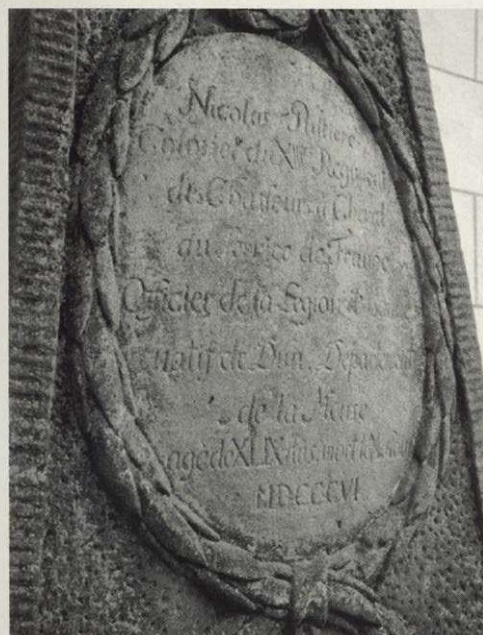 Nicolas
Colonel du Regiment
des Chasseurs à Cheval
du Service de France
Officier de la Legion
natif de Dun, Departement
de la Meuse
agé de XLIX ans, mort le
MDCCCVI